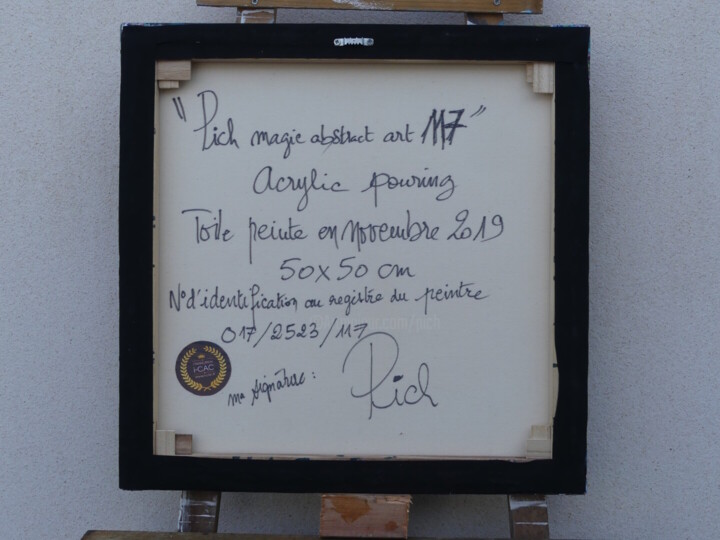 "Pich magic abstract art 117"
Acrylic pouring
Toile peinte en novembre 2019
50x50 cm
N° d'identification au registre du peintre
017/2523/117
I-CAC
ma signature :
Pich